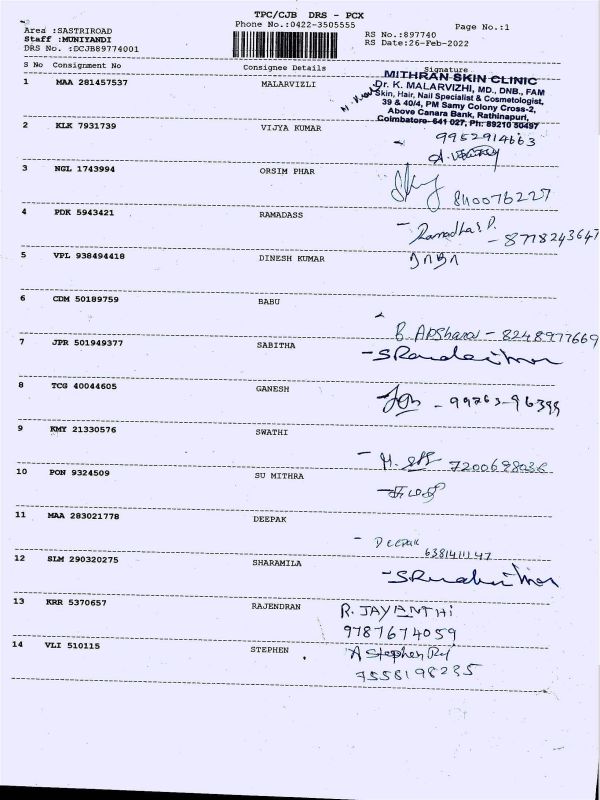 TPC/CJB DRS - PCX
Phone No.:0422-3505555
Page No.:1
Area :SASTRIROAD
Staff :MUNIYANDI
DRS No. :DCJB89774001
RS No.:897740
RS Date:26-Feb-2022
S No Consignment No Consignee Details Signature
1 MAA 281457537 MALARVIZLI
MITHRAN SKIN CLINIC
Dr. K. MALARVIZHI, MD., DNB., FAM
Skin, Hair, Nail Specialist & Cosmetologist,
39 & 40/4, PM Samy Colony Cross-2,
Above Canara Bank, Rathinapuri,
Coimbatore- 641 027, Ph: 89210 50497
2 KLK 7931739 VIJYA KUMAR
9952914663
3 NGL 1743994 ORSIM PHAR
8110076227
4 PDK 5943421 RAMADASS
8778243647
5 VPL 938494418 DINESH KUMAR
6 CDM 50189759 BABU
8248977669
7 JPR 501949377 SABITHA
8 TCG 40044605 GANESH
99763-96399
9 KMY 21330576 SWATHI
7200698036
10 PON 9324509 SU MITHRA
11 MAA 283021778 DEEPAK
DEEPAK
6381411147
12 SLM 290320275 SHARAMILA
13 KRR 5370657 RAJENDRAN
R. JAYANTHI
9787674059
14 VLI 510115 STEPHEN
A Stephen Raj
7558198235